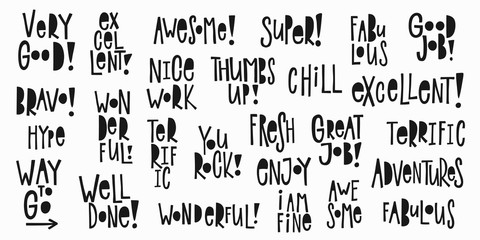 VERY
GOOD!
EX
CEL
LENT!
AWESOME!
SUPER!
FABU
LOUS
GOOD
JOB!
NICE
WORK
THUMBS
UP!
CHILL
EXCELLENT!
BRAVO!
WON
DER
FUL!
HYPE
TER
RIF
IC
YOU
ROCK!
FRESH
GREAT
JOB!
TERRIFIC
WAY
TO
GO
WELL
DONE!
ENJOY
ADVENTURES
WONDERFUL!
i AM
FiNE
AWE
SOME
FABULOUS